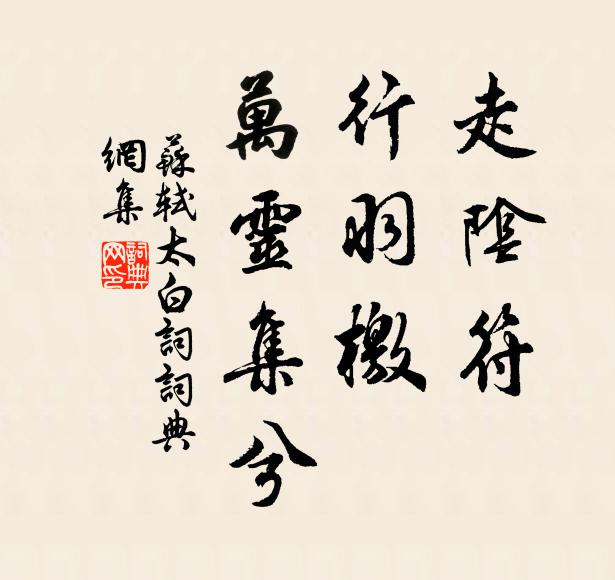 走陰符
行羽檄
萬靈集兮
蘇軾太白詞詞典
網集
詞典網印